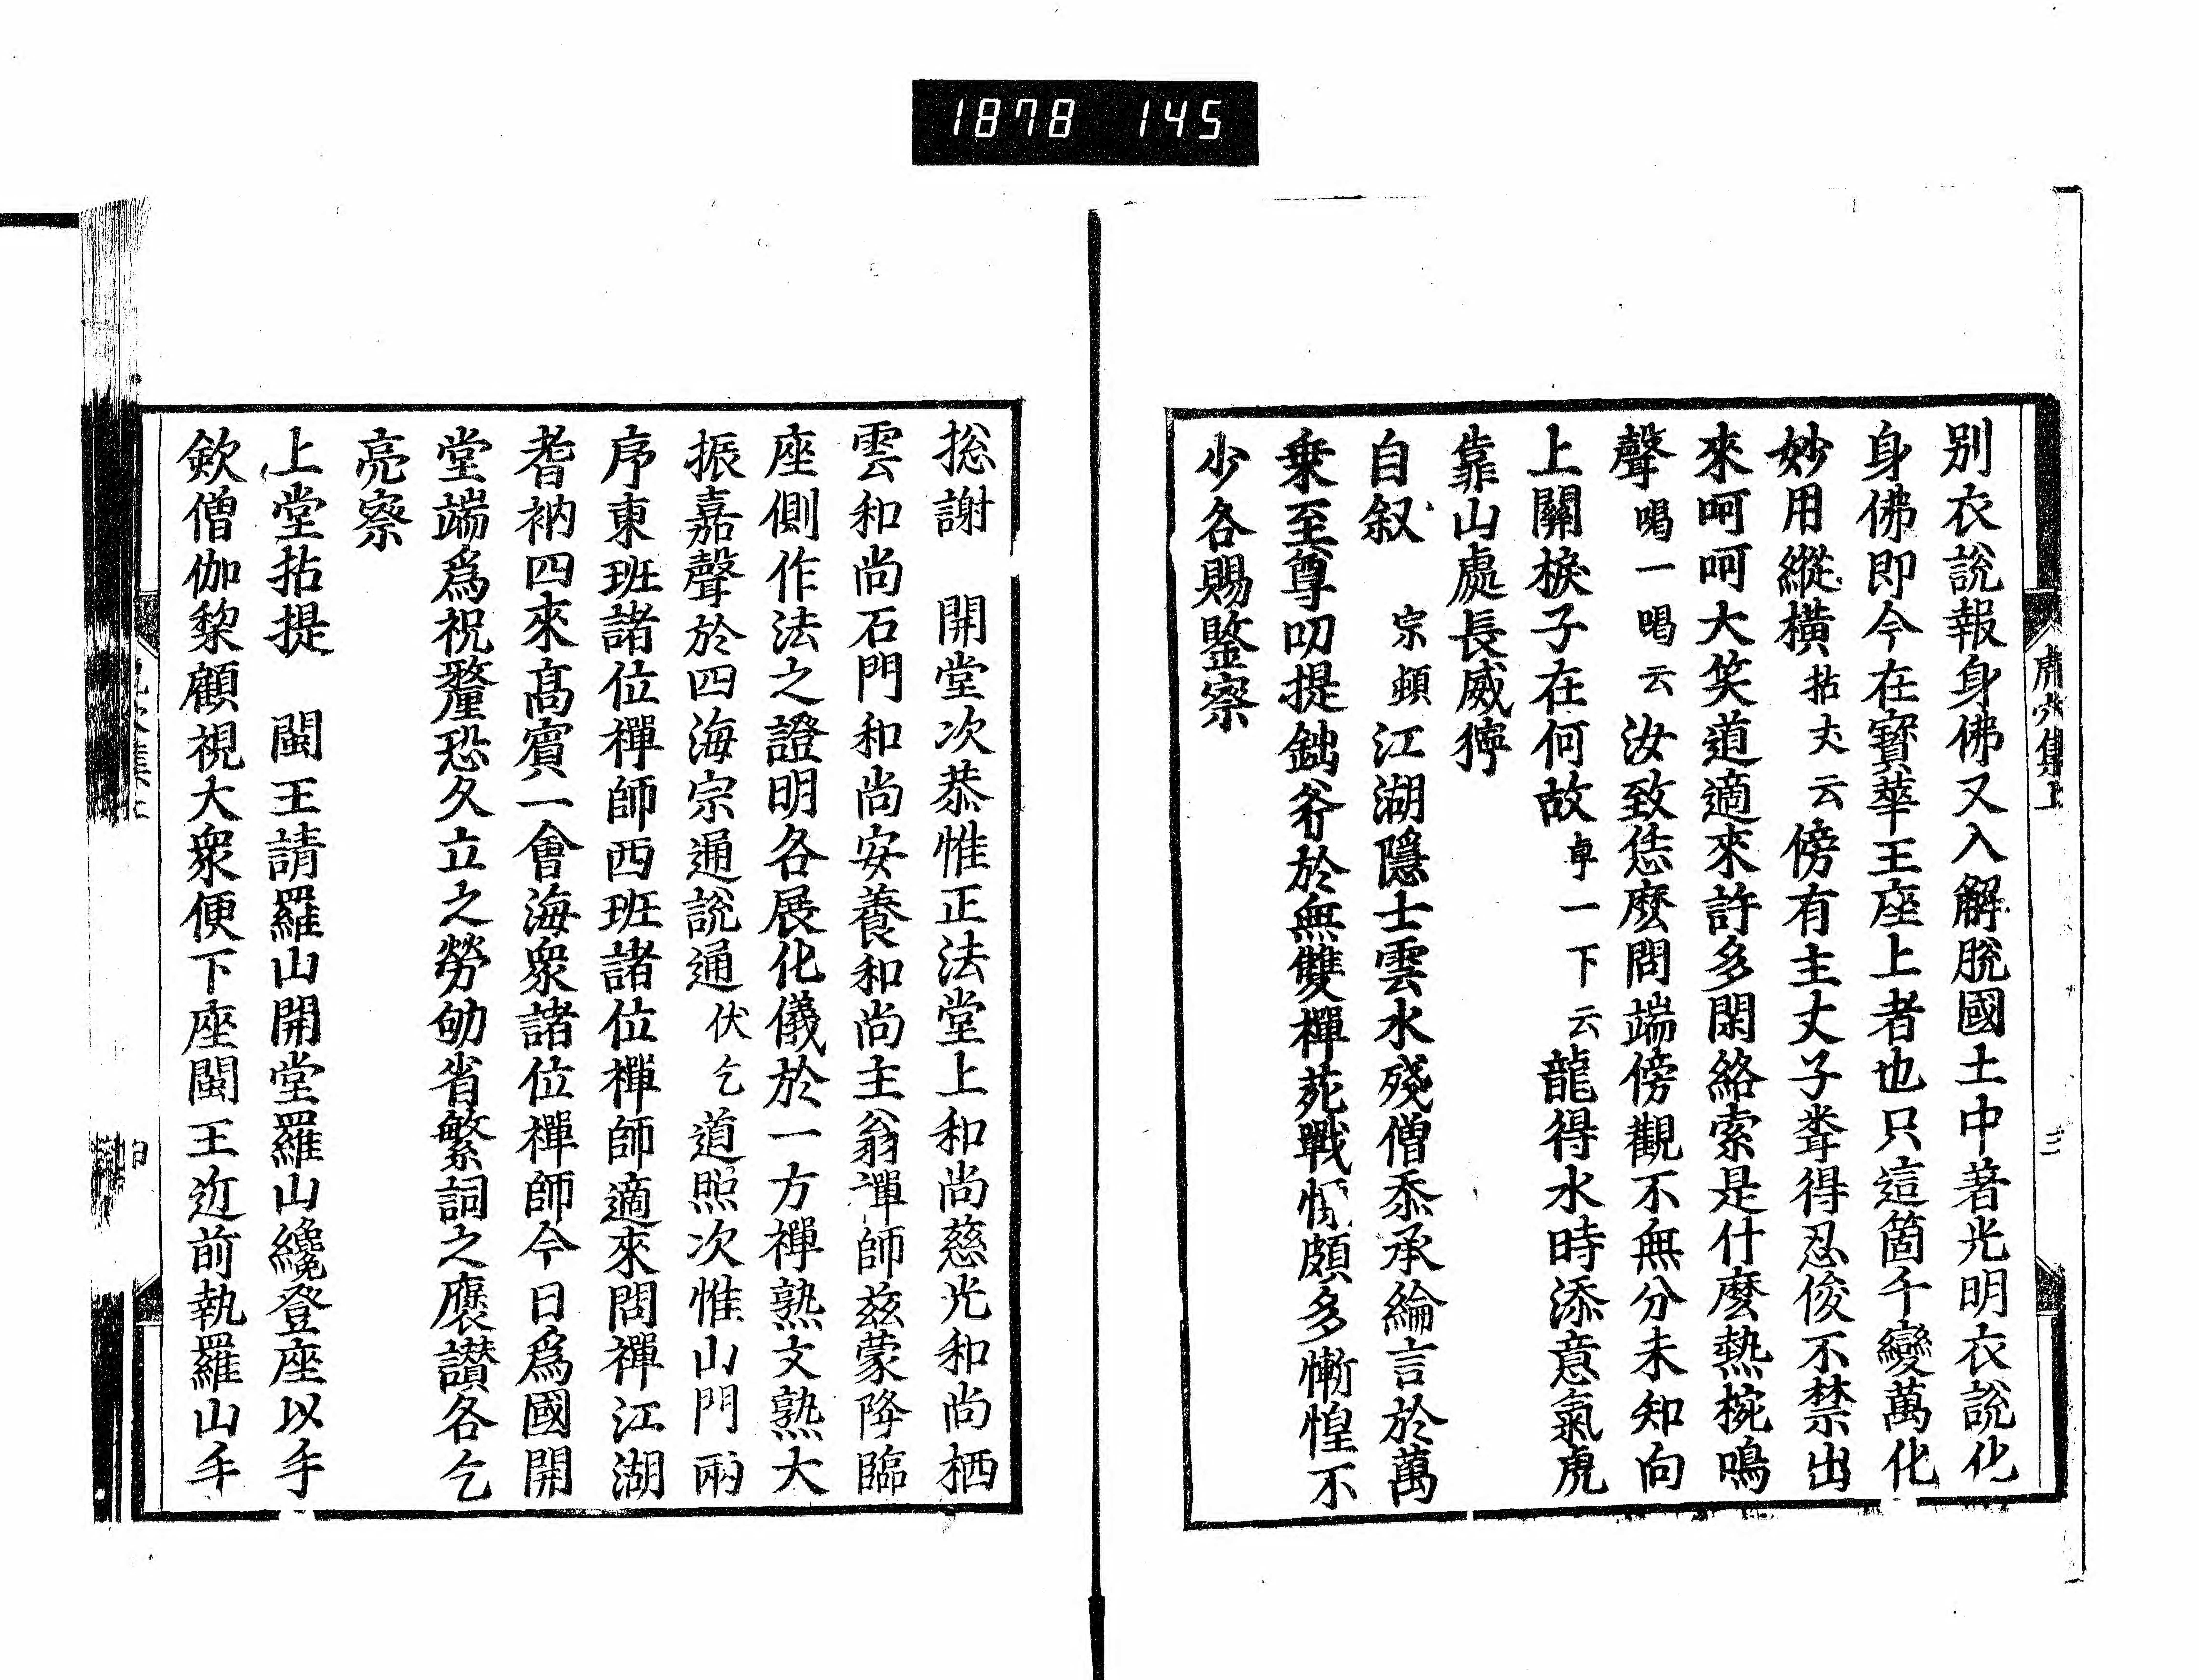 1878 145
虎穴集上 三
别衣說報身佛又入解脫國土中著光明衣說化
身佛即今在寶華王座上者也只這箇千變萬化
妙用縱橫拈丈云傍有主丈子聻得忍俊不禁出
來呵呵大笑道適來許多閑絡索是什麼熱椀鳴
聲喝一喝云汝致恁麼問端傍觀不無分未知向
上關棙子在何故卓一下云龍得水時添意氣虎
靠山處長威獰
自叙 宗頔江湖隱士雲水殘僧忝承綸言於萬
乗至尊叨提鈯斧於無雙禪苑戰慄頗多慚惶不
少各賜鑒察
捴謝 開堂次恭惟正法堂上和尚慈光和尚栖
雲和尚石門和尚安養和尚主翁禪師茲蒙降臨
座側作法之證明各展化儀於一方禪熟文熟大
振嘉聲於四海宗通說通伏乞道照次惟山門兩
序東班諸位禪師西班諸位禪師適來問禪江湖
耆衲四來髙賓一會海衆諸位禪師今日爲國開
堂端爲祝釐恐久立之勞劬省繁詞之褒讃各乞
亮察
上堂拈提 閩王請羅山開堂羅山纔登座以手
欽僧伽黎顧視大衆便下座閩王近前執羅山手